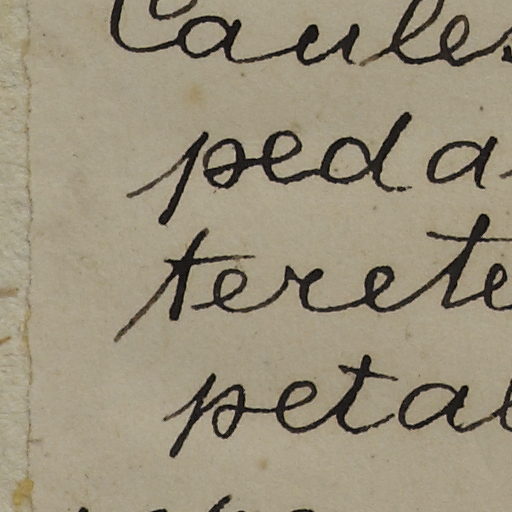 Caules
peda
terete
petal